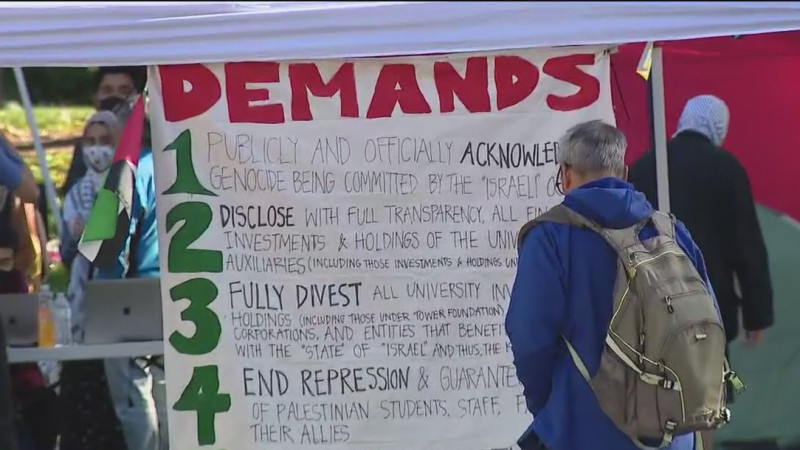 DEMANDS
1 PUBLICLY AND OFFICIALLY ACKNOWLED
GENOCIDE BEING COMMITTED BY THE "ISRAELI"
2 DISCLOSE WITH FULL TRANSPARENCY, ALL
INVESTMENTS & HOLDINGS OF THE
AUXILIARIES (INCLUDING THOSE INVESTMENTS & HOLDINGS
3 FULLY DIVEST ALL UNIVERSITY
HOLDINGS (INCLUDING THOSE UNDER TOWER FOUNDATION)
CORPORATIONS, AND ENTITIES THAT
WITH THE "STATE" OF "ISRAEL" AND THUS, THE
4 END REPRESSION & GUARANTE
OF PALESTINIAN STUDENTS, STAFF,
THEIR ALLIES